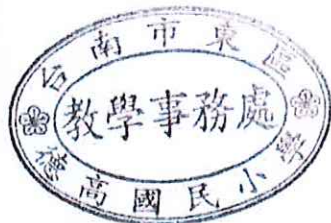 台南市東區
教學事務處
德高國民小學